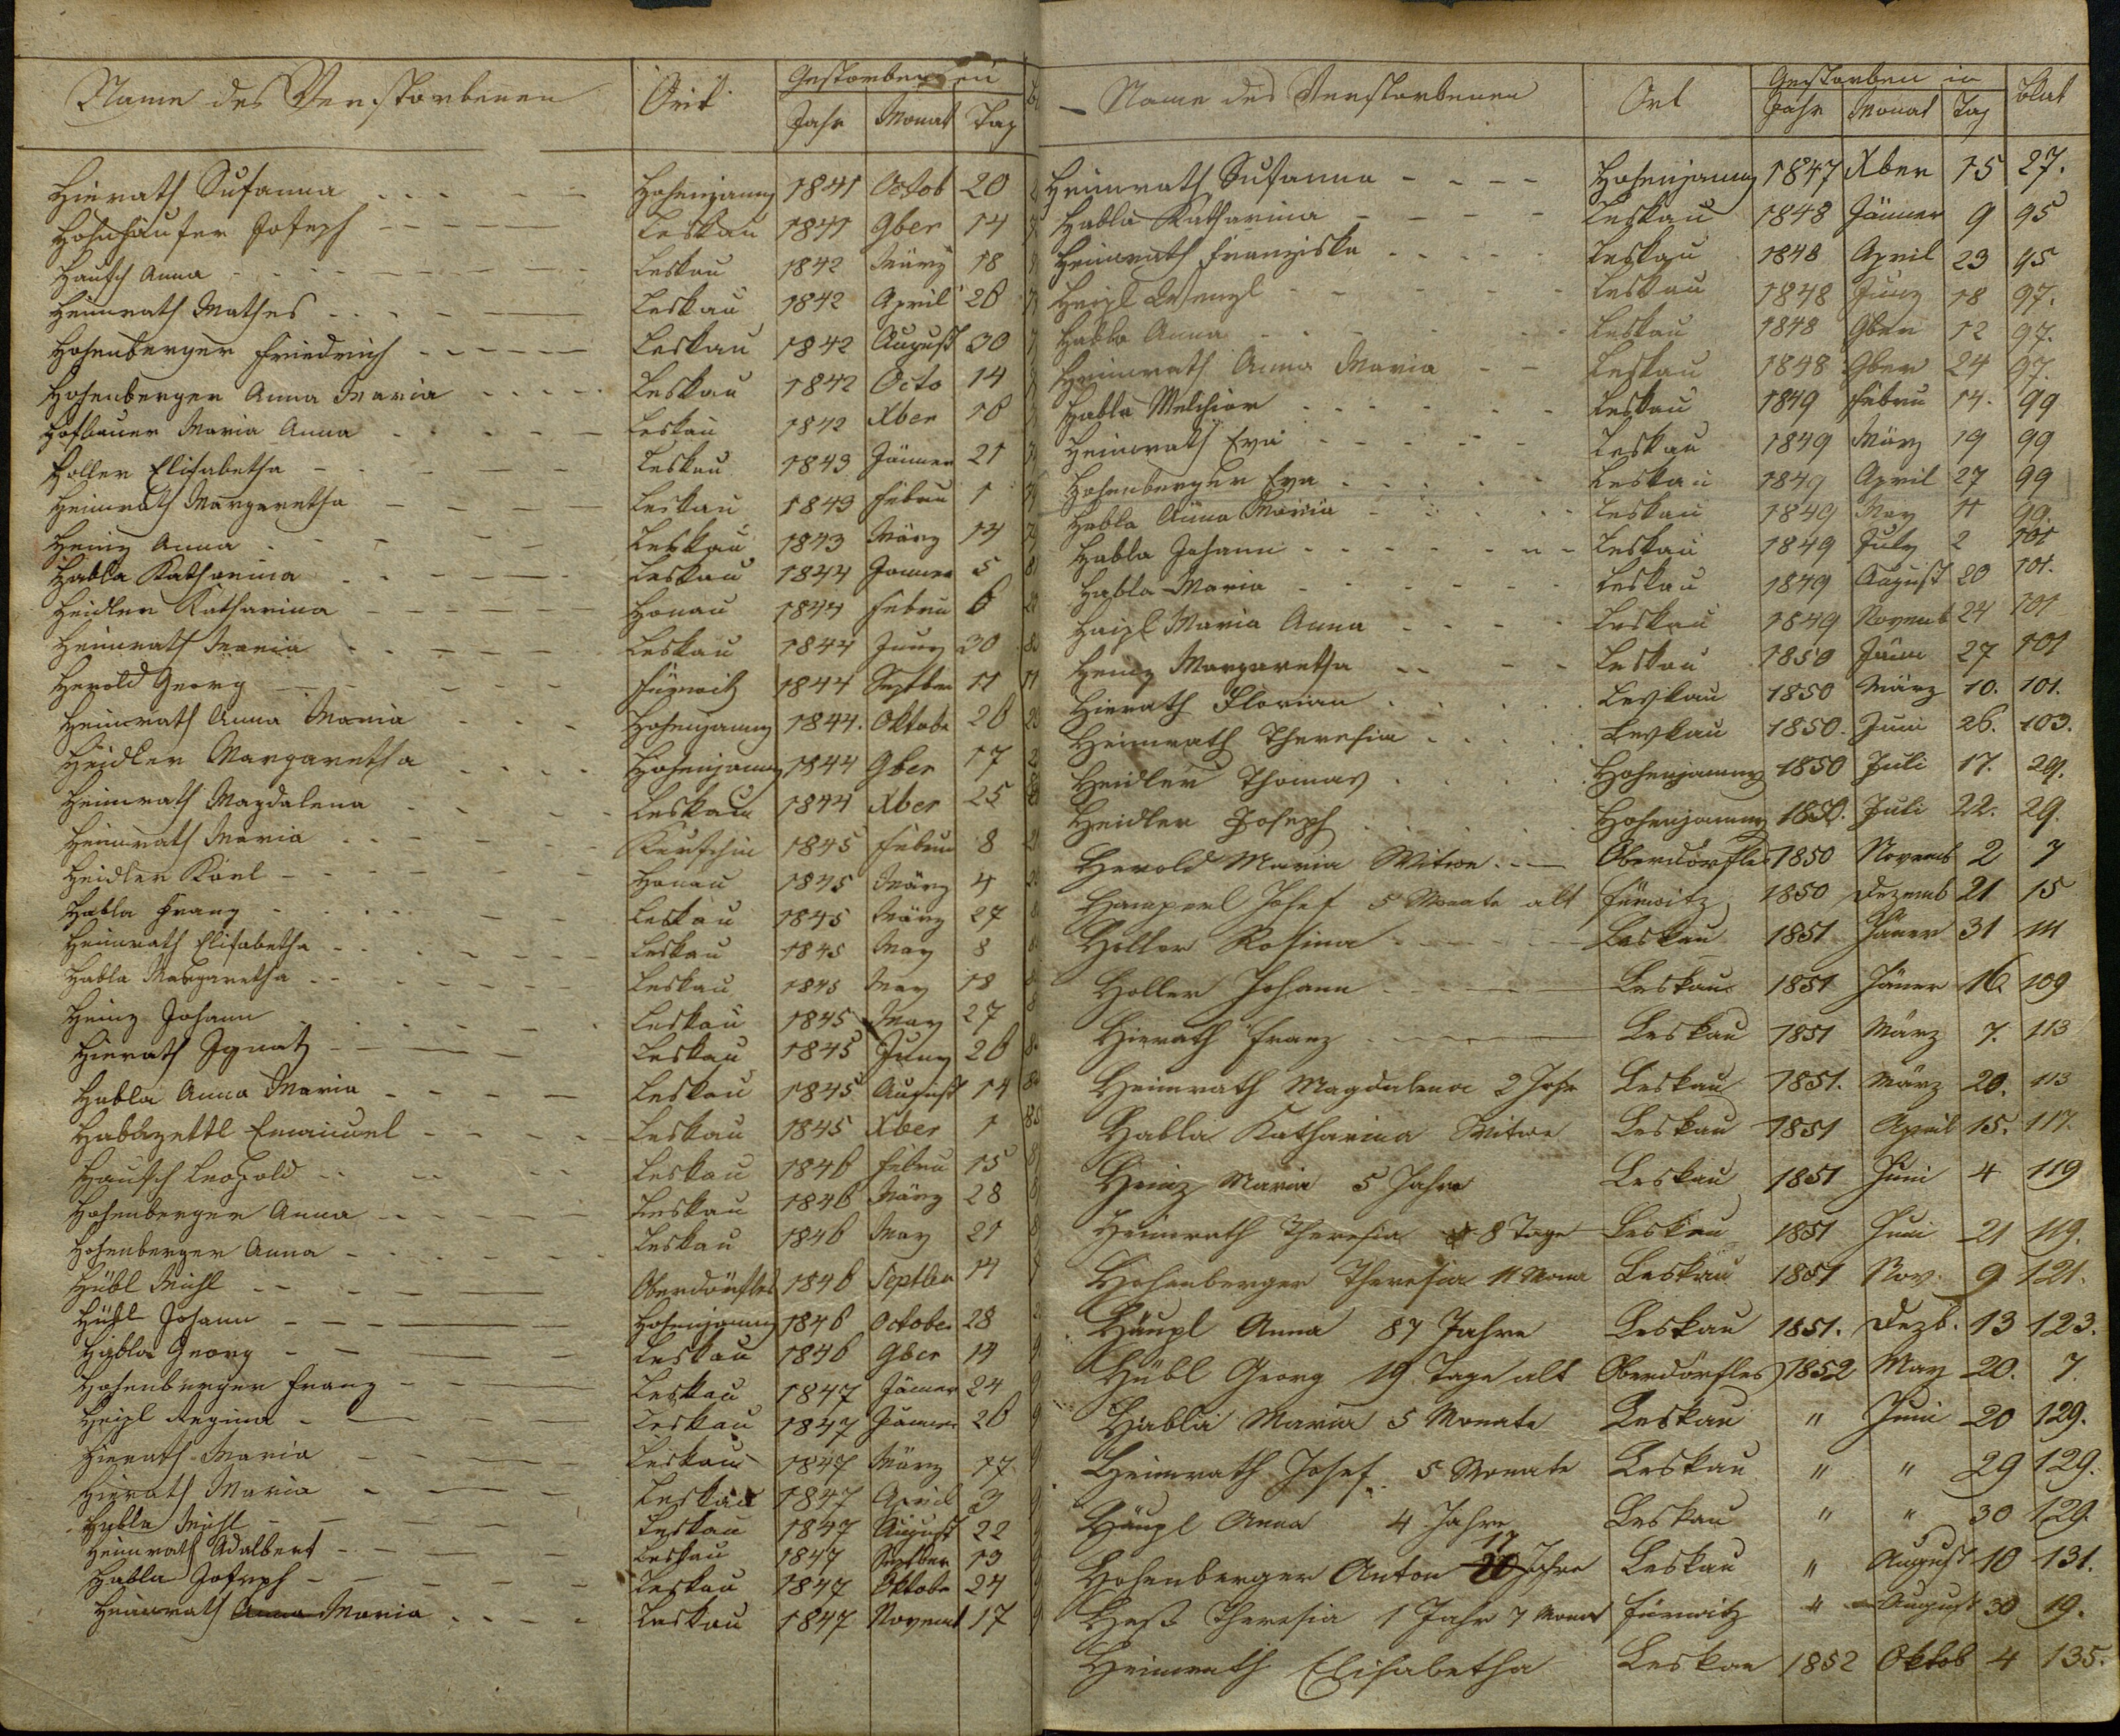 Name des Verstorbenen Ort Gestorben in
Jahr Monat Tag
Hierath Susanna Hohenjamny 1841 Octob 20
Hohnhäuser Joseph Leskau 1841 9ber 14
Hausch Anna Leskau 1842 März 18
Heimrath Mathes Leskau 1842 April 26
Hohenberger Friedrich Leskau 1842 August 30
Hohenberger Anna Maria Leskau 1842 Octo 14
Hofbauer Maria Anna Leskau 1842 Xber 16
Holler Elisabetha Leskau 1843 Jänner 21
Heimrath Margaretha Leskau 1843 Febru 1
Heinz Anna Leskau 1843 März 14
Habla Katharina Leskau 1844 Janner 5
Heidler Katharina Honau 1844 Febru 6
Heimrath Maria Leskau 1844 Juny 30
Herold Georg Fürwitz 1844 Septber 11
Heimrath Anna Maria Hohenjamny 1844. Oktobr 26
Heidler Margaretha Hohenjamny 1844 9ber 17
Heimrath Magdalena Leskau 1844 Xber 25
Heimrath Maria 1845 Febru 8
Heidler Karl Honau 1845 März 4
Habla Franz Leskau 1845 März 27
Heimrath Elisabetha Leskau 1845 May 8
Habla Margaretha Leskau 1845 May 18
Heinz Johann Leskau 1845 May 27
Hierath Ignatz Leskau 1845 Juny 26
Habla Anna Maria Leskau 1845 August 14
Habbzettl Emanuel Leskau 1845 Xber 1
Hausch Leopold Leskau 1846 Febru 15
Hohenberger Anna Leskau 1846 März 28
Hohenberger Anna Leskau 1846 May 21
Hübl Michl Oberdörfles 1846 Septber 14
Hübl Johann Hohenjamny 1846 October 28
Habla Georg Leskau 1846 9ber 14
Hohenberger Franz Leskau 1847 Jänner 24
Heipl Regina Leskau 1847 Jänner 26
Hierath Maria Leskau 1847 März 17
Hierath Maria Leskau 1847 April
Habla Michl Leskau 1847 August 22
Heimrath Adalbert Leskau 1847 Septber 13
Habla Joseph Leskau 1847 Oktobr 24
Heimrath Anna Maria Leskau 1847 Novemb 17
Name des Verstorbenen Ort Gestorben in Blat
Jahr Monat Tag
Heimrath Susanna Hohenjamny 1847 Xber 15 27.
Habla Katharina Leskau 1848 Jänner 9 95
Heimrath Franziska Leskau 1848 April 23 95
Heipl Wenzl Leskau 1848 Juny 18 97.
Habla Anna Leskau 1848 9ber 12 97.
Heimrath Anna Maria Leskau 1848 9ber 24 97.
Habla Melchior Leskau 1849 Febru 14. 99
Heimrath Eva Leskau 1849 März 19 99
Hohenberger Eva Leskau 1849 April 27 99
Habla Anna Maria Leskau 1849 May 11 99
Habla Johann Leskau 1849 July 2 101
Habla Maria Leskau 1849 August 20 101.
Haipl Maria Anna Leskau 1849 Novemb 24 101
Heinz Margaretha Leskau 1850 Jänn 27 101
Hierath Florian Leskau 1850 März 10. 101.
Heimrath Theresia Leskau 1850. Juni 26. 103.
Heidler Thomas Hohenjamny 1850 Juli 17. 29.
Heidler Joseph Hohenjamny 1850. Juli 22. 29.
Herold Maria Witwe Oberdörfles 1850 Novemb 2 7
Hamperl Josef 5 Monate alt Fürwitz 1850 Dezemb 21 15
Holler Rosina Leskau 1851 Jäner 31 111
Holler Johann Leskau 1851 Jäner 16. 109
Hierath Franz Leskau 1851 März 7. 113
Heimrath Magdalena 2 Jahr Leskau 1851. März 20. 113
Habla Katharina Witwe Leskau 1851 April 15. 117.
Heinz Maria 5 Jahre Leskau 1851 Juni 4 119
Heimrath Theresia 8 Tage Leskau 1851 Juni 21 119.
Hohenberger Theresia 11 Mona Leskau 1851 Nov. 9 121.
Häupl Anna 87 Jahre Leskau 1851. Dezb. 13 123.
Hübl Georg 19 Tage alt Oberdörfles 1852 May 20. 7.
Habla Maria 5 Monate Leskau " Juni 20 129.
Heimrath Josef 5 Monate Leskau " " 29 129.
Häupl Anna 4 Jahre Leskau " " 30 129.
Hohenberger Anton 17 Jahre Leskau " August 10 131.
Heß Theresia 1 Jahr 7 Monat Fürwitz " August 30 19.
Heimrath Elisabetha Leskau 1852 Oktob 4 135.